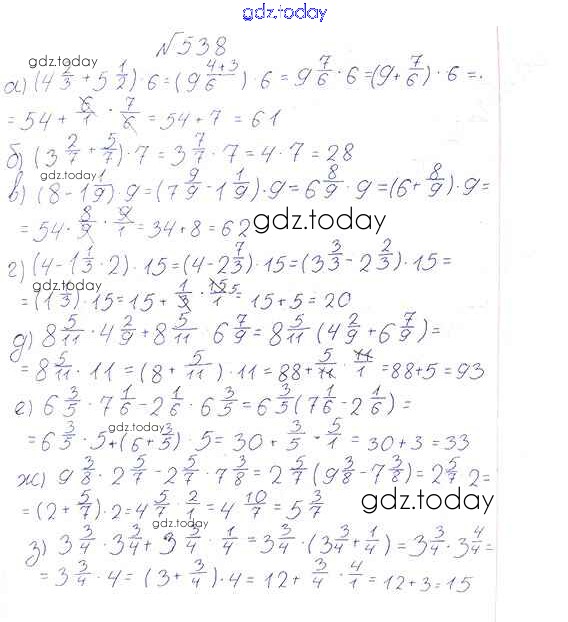 gdz.today
№538
gdz.today
а) (4 2/3 + 5 1/2) · 6 = (9 4+3/6) · 6 = 9 7/6 · 6 = (9 + 7/6) · 6 =
= 54 + 6/1 · 7/6 = 54 + 7 = 61
б) (3 2/7 + 5/7) · 7 = 3 7/7 · 7 = 4 · 7 = 28
gdz.today
в) (8 - 1 1/9) · 9 = (7 9/9 - 1 1/9) · 9 = 6 8/9 · 9 = (6 + 8/9) · 9 =
= 54 · 8/9 · 9/1 = 34 + 8 = 62
gdz.today
г) (4 - 1 1/3 · 2) · 15 = (4 - 2 7/3) · 15 = (3 3/3 - 2 2/3) · 15 =
gdz.today
= (1 1/3) · 15 = 15 + 1/3 · 15 5/1 = 15 + 5 = 20
д) 8 5/11 · 4 2/9 + 8 5/11 · 6 7/9 = 8 5/11 (4 2/9 + 6 7/9) =
= 8 5/11 · 11 = (8 + 5/11) · 11 = 88 + 5/11 · 11/1 = 88 + 5 = 93
е) 6 3/5 · 7 1/6 - 2 1/6 · 6 3/5 = 6 3/5 (7 1/6 - 2 1/6) =
gdz.today
= 6 3/5 · 5 = (6 + 3/5) · 5 = 30 + 3/5 · 5/1 = 30 + 3 = 33
ж) 9 3/8 · 2 5/7 - 2 5/7 · 7 3/8 = 2 5/7 (9 3/8 - 7 3/8) = 2 5/7 · 2 =
= (2 + 5/7) · 2 = 4 5/7 · 2/1 = 4 10/7 = 5 3/7
gdz.today
gdz.today
з) 3 3/4 · 3 3/4 + 3 3/4 · 1/4 = 3 3/4 · (3 3/4 + 1/4) = 3 3/4 · 3 4/4 =
= 3 3/4 · 4 = (3 + 3/4) · 4 = 12 + 3/4 · 4/1 = 12 + 3 = 15